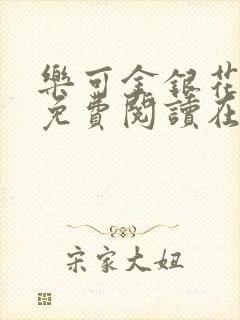 樂可金銀花
免費閱讀在
宋家大妞